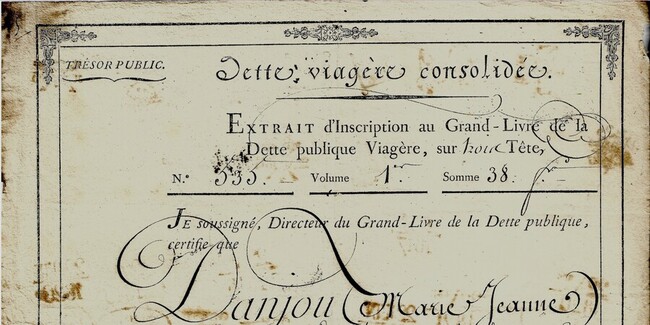 TRÉSOR PUBLIC.
Dette viagère consolidée.
EXTRAIT d'Inscription au Grand-Livre de la
Dette publique Viagère, sur Tête,
N.º 535. Volume 1er Somme 38.
JE soussigné, Directeur du Grand-Livre de la Dette publique,
certifie que
Danjou (Marie Jeanne)